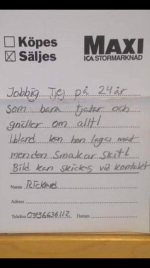 Köpes
Säljes
MAXI
ICA STORMARKNAD
Jobbig Tjej på 24 år
som bara tjatar och
gnäller om allt!
Ibland kan hon laga mat
men den smakar skit!
Bild kan skickas vid kontakt
Namn Rickard
Adress
Telefon Namn